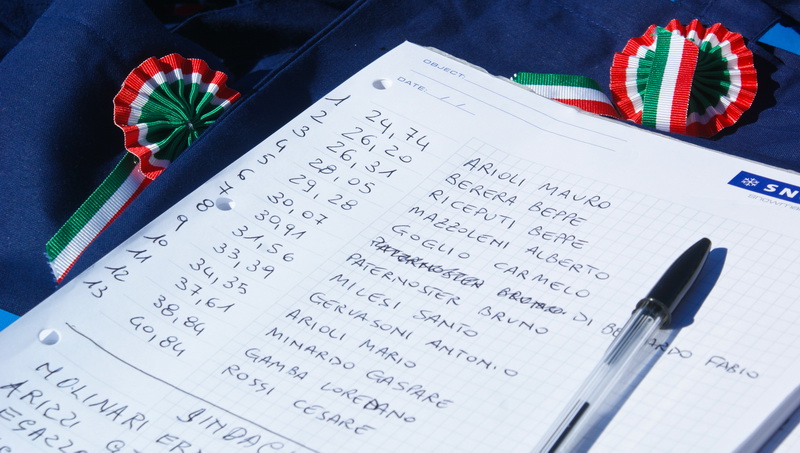 OBJECT:
DATE: / /
SN
1 24,74 ARIOLI MAURO
2 26,20 BERERA BEPPE
3 26,31 RICEPUTI BEPPE
4 28,05 MAZZOLENI ALBERTO
5 29,28 GOGLIO CARMELO
6 30,07 PATERNOSTER BRUNO DI BE ARDO FABIO
7 30,91 PATERNOSTER BRUNO
8 31,56 MILESI SANTO
9 33,39 GERVASONI ANTONIO
10 34,35 ARIOLI MARIO
11 37,61 MINARDO GASPARE
12 38,84 GAMBA LOREDANO
13 40,84 ROSSI CESARE
SINDAC
MOLINARI
ARIZZI